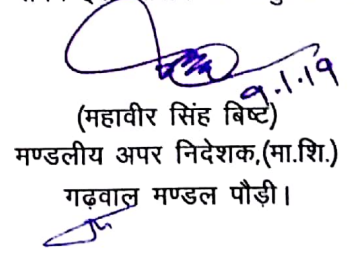 9.1.19
(महावीर सिंह बिष्ट)
मण्डलीय अपर निदेशक,(मा.शि.)
गढ़वाल मण्डल पौड़ी।